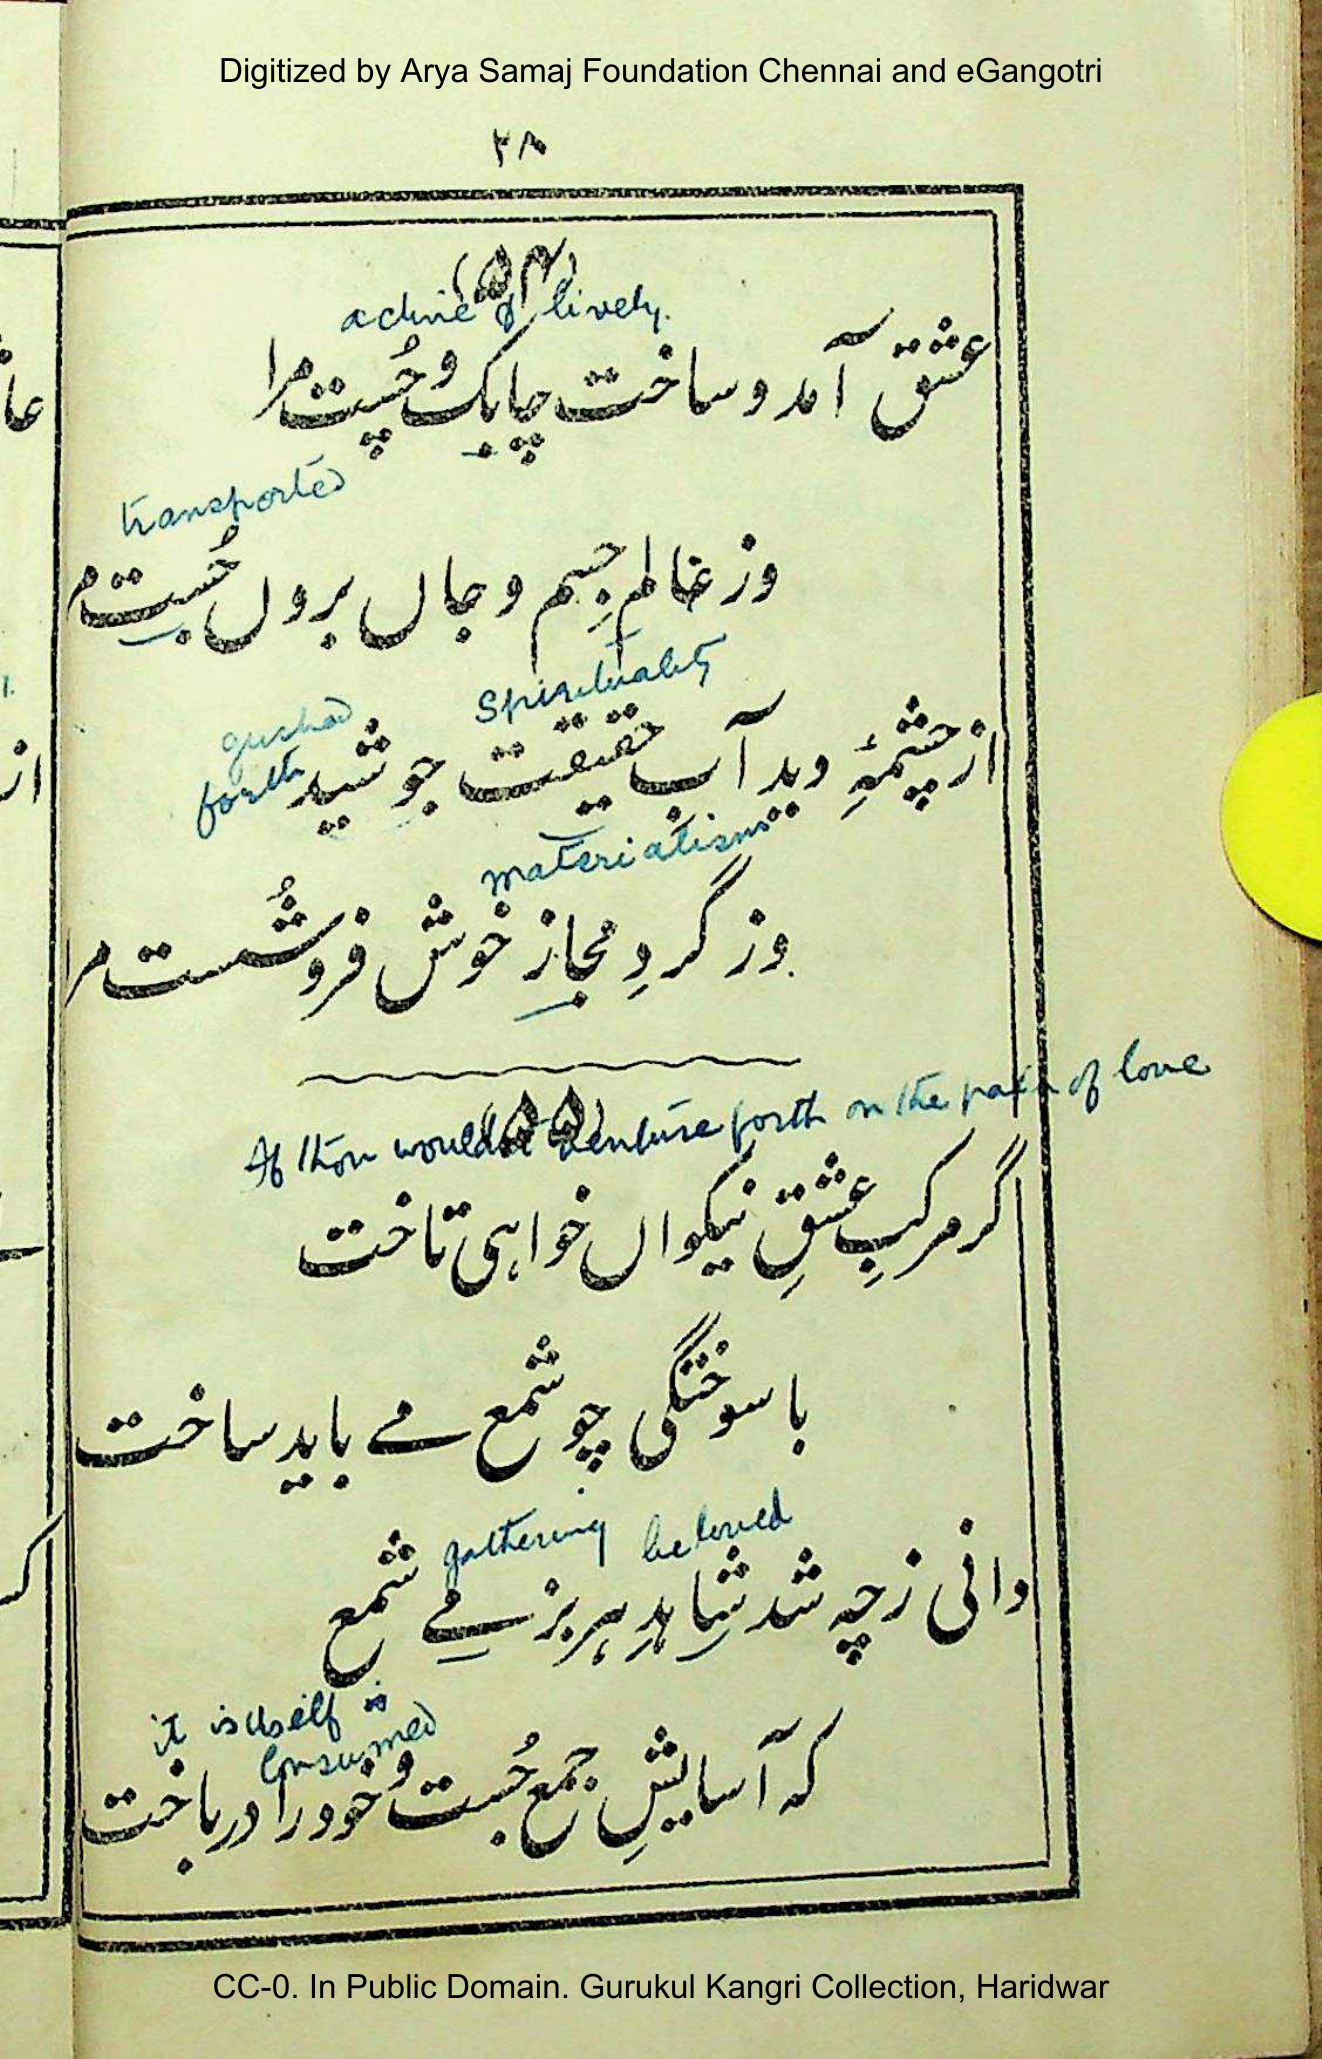 Digitized by Arya Samaj Foundation Chennai and eGangotri
۲۸
(۵۴)
active & lively.
عشق آمد و ساخت چابک و چُست مرا
transported
وز عالمِ جسم و جاں بروں جُست مرا
spirituality
gushed
forth
از چشمۂِ دید آبِ حقیقت جوشید
materialism
وز گردِ مجاز خوش فرو شُست مرا
(۵۵)
If thou wouldst venture forth on the path of love
گر مرکبِ عشقِ نیکواں خواہی تاخت
با سوختگی چو شمع مے باید ساخت
gathering beloved
دانی ز چہ شد شاہدِ ہر بزمے شمع
it is itself is
consumed
کہ آسایشِ جمع جُست و خود را در باخت
CC-0. In Public Domain. Gurukul Kangri Collection, Haridwar